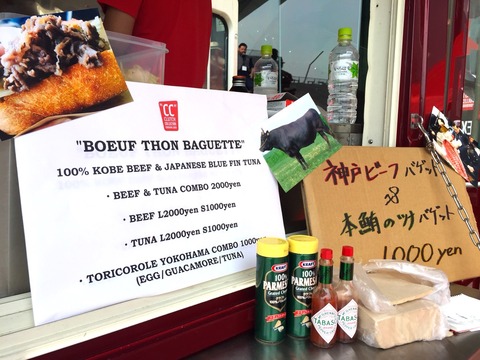 "CC"
"BOEUF THON BAGUETTE"
100% KOBE BEEF & JAPANESE BLUE FIN TUNA
・BEEF & TUNA COMBO 2000yen
・BEEF L2000yen S1000yen
・TUNA L2000yen S1000yen
・TORICOROLE YOKOHAMA COMBO 1000yen
(EGG/GUACAMORE/TUNA)
神戸ビーフバゲット
&
本鮪のツナバゲット
1000yen
KRAFT
100%
PARMESAN
Grated Cheese
KRAFT
100%
PARMESAN
TABASCO
TABASCO